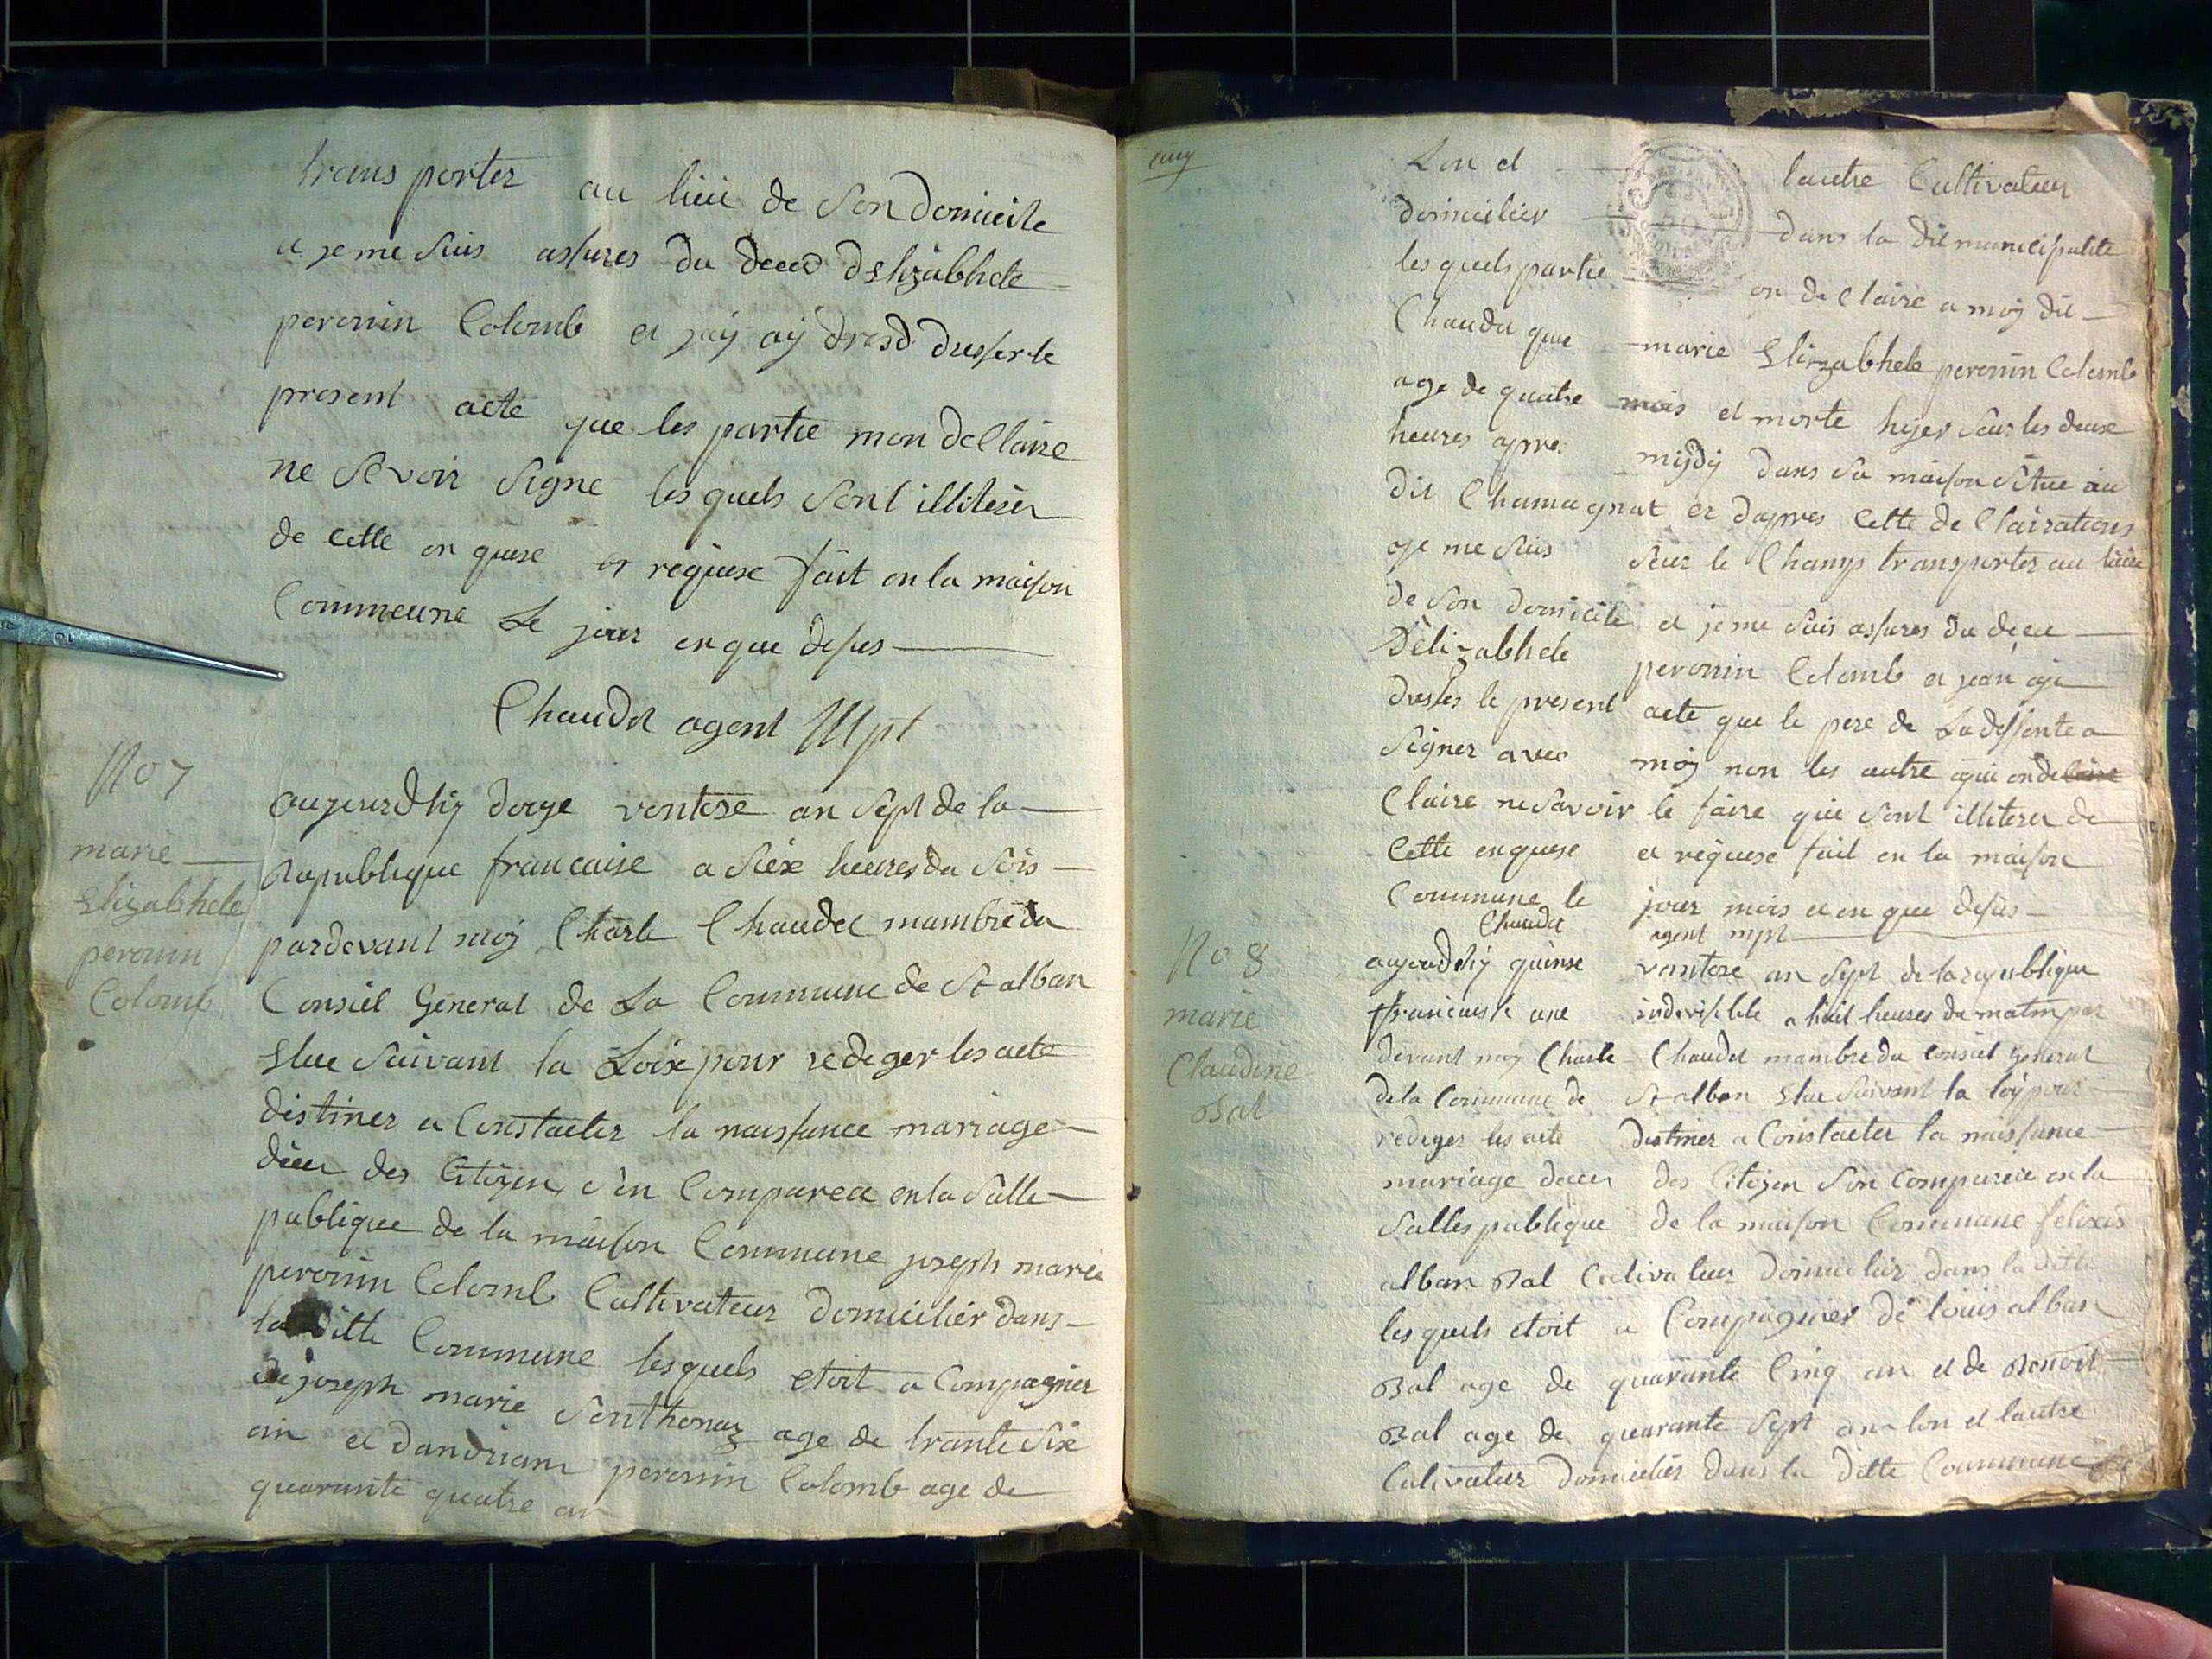 trans porter au lieu de son domicile
a je me suis assures du deced dElizabhete
peronin Colomb et jay ay dresd dresser le
present acte que les partie mon dellaire
ne sevoir signe les quels sont illiterer
de cette en quese et requese fait en la maison
Commeune Le jour en que desus
Chaudet agent Mpl
No 7
marie
Elizabhete
peronin
Colomb
aujourdhy douze ventose an sept de la
Republique francaise a siex heures du sois
pardevant moy Charle Chaudet mambre du
Consiel General de La Commune de St alban
Elue suivant la Loix pour rediger les acte
distiner a Constacter la naissance mariage
deces des Citoyen s'en Comparea en la salle
publique de la maison Commune joseph marie
peronin Colomb Cultivateur domicilier dans
la ditte Commune les quels etoit a Compagnier
de joseph marie Senthonaz age de trante six
an et dandriane peronin Colomb age de
quarante quatre an
Lon et lautre Cultivateur
domicilier dans la dit municipalite
les quels partie on de Claire a moy dit
Chaudet que marie Elizabhete peronin Colomb
age de quatre mois et morte hyer sur les deuxe
heures apres myjdy dans sa maison situe au
dit Chamagnat et dapres Cette de Clairations
je me suis sur le Champ transporter au lieu
de son domicile et je me suis assures du dece
Delizabhete peronin Colomb et jean aye
dresses le present acte que le pere de La deffente a
signer avec moy non les autre que on de
Claire ne savoir le faire que sont illiterer de
Cette enquese et requese fait en la maison
Commune le jour mois et en que desus
Chaudet agent mpl
No 8
marie
Claudine
Bal
aujourdhy quinse vantose an sept de la republique
francaise une indivisible a huit heures du matin par
devant moy Charle Chaudet mambre du Consiel General
de la Commune de St alban Elue suivant la loy pour
rediger les acte distiner a Constacter la naissance
mariage deces des Citoyen s'en Comparea en la
salles publique de la maison Commune
alban Bal Cultivateur domicilier dans la ditte
les quels etoit a Compagnier de louis alban
Bal age de quarante Cinq an et de Benoit
Bal age de quarante sept an lon et lautre
Cultivateur domicilier dans la ditte Commune